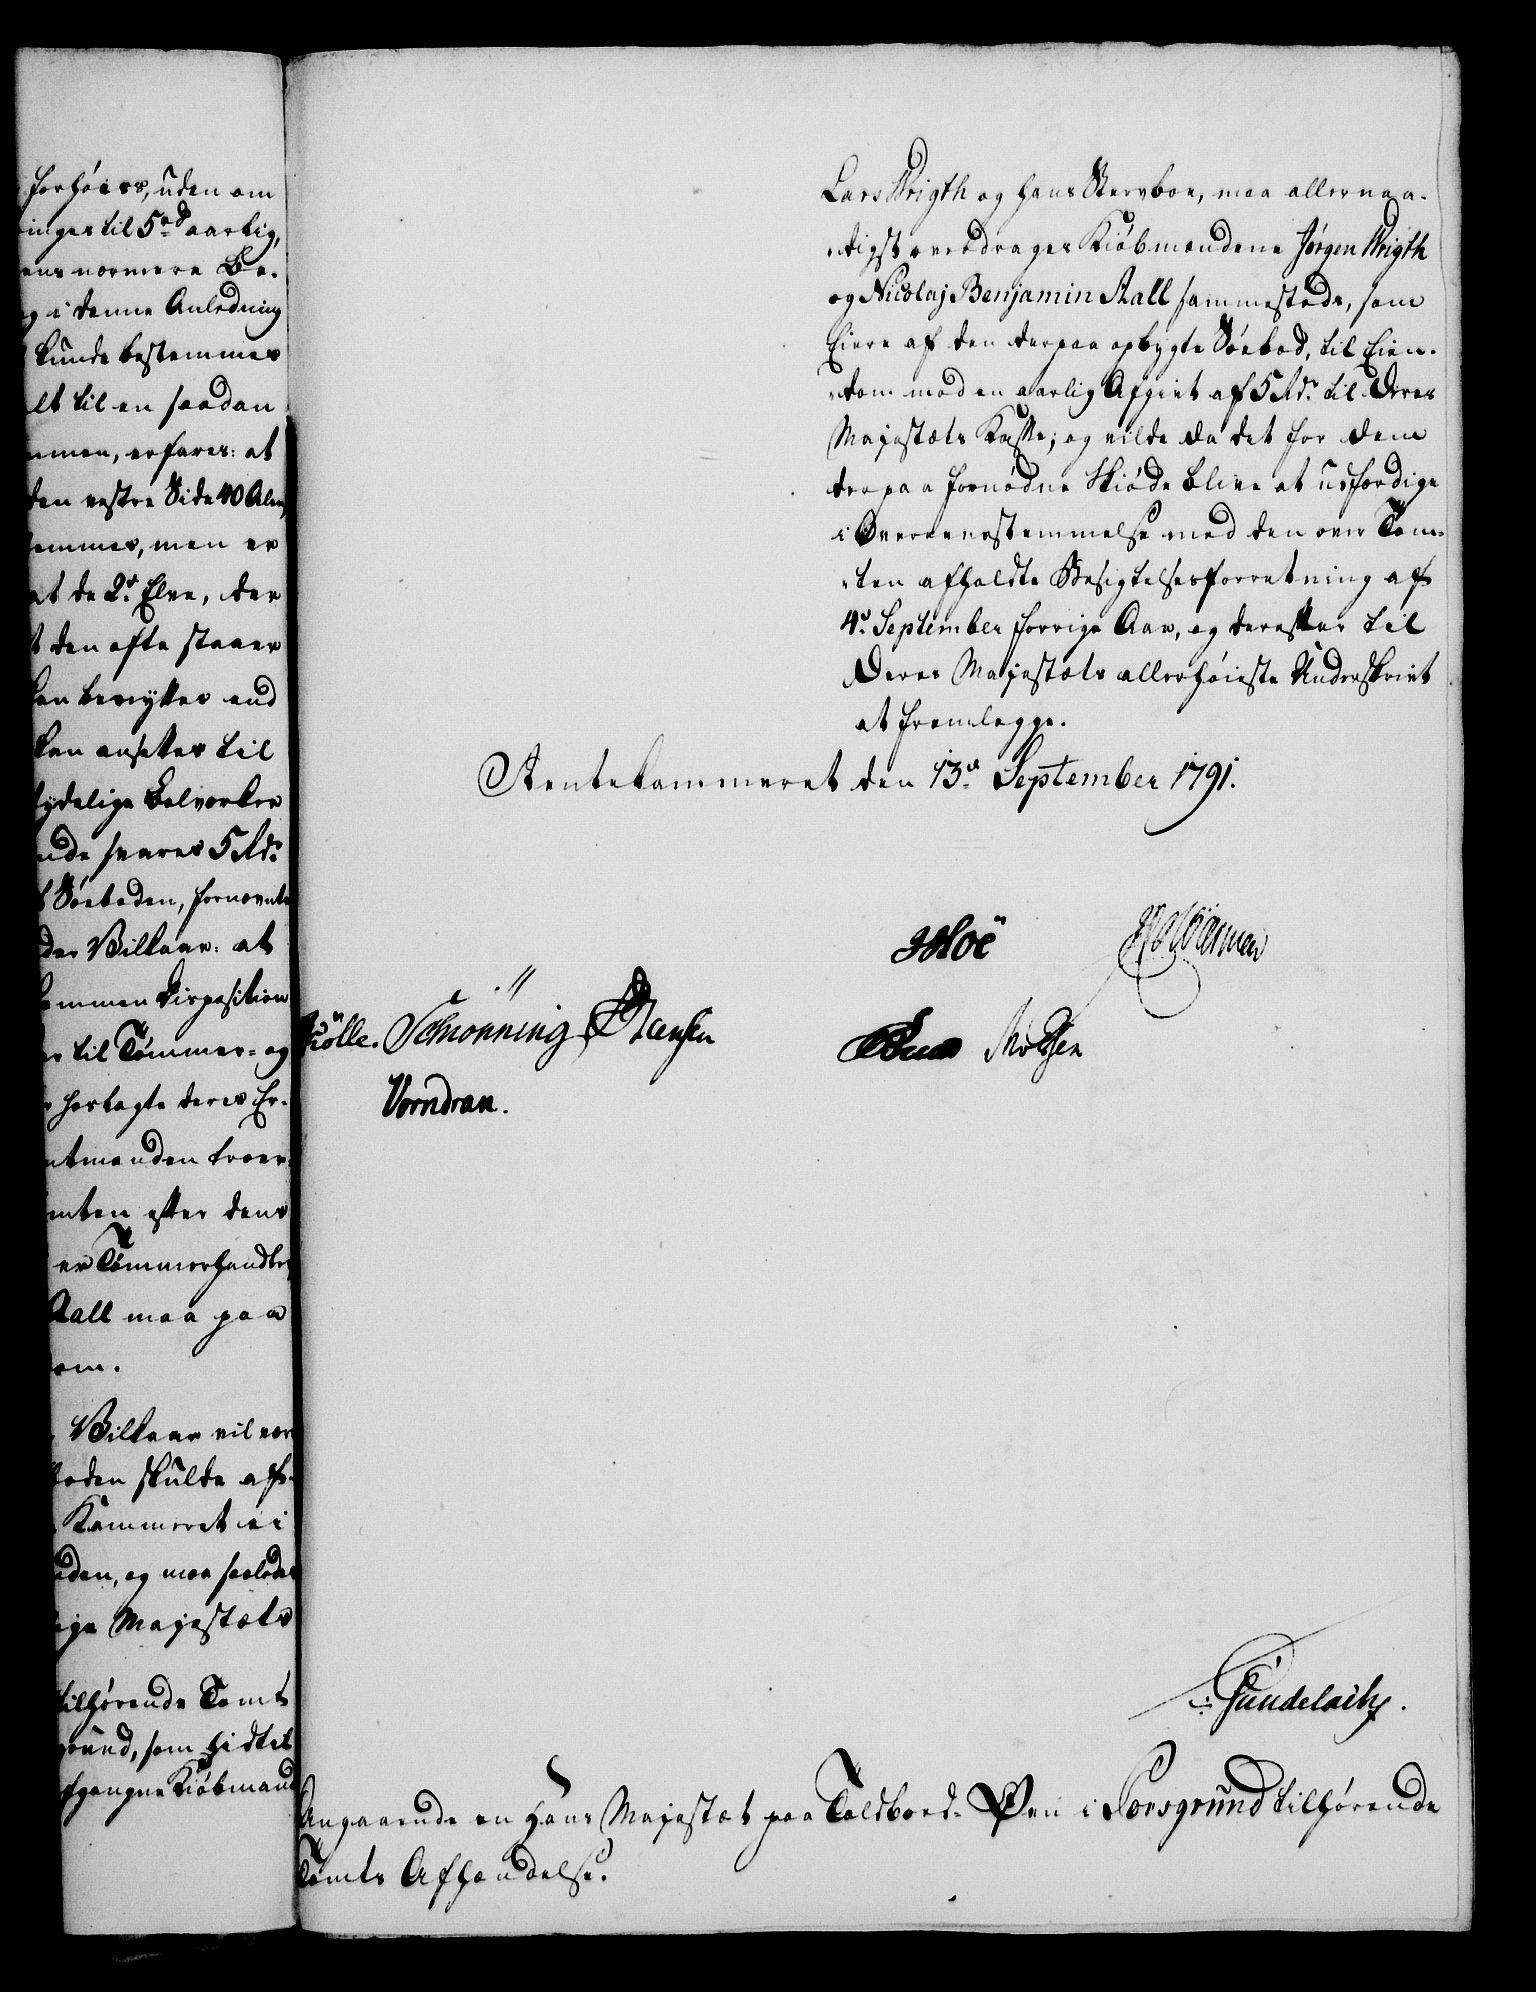 forhøies, uden om
inges til 5 rd aarlig,
ens nærmere Be-
g i denne Anledning
kunde bestemmes
lt til en saadan
mmen, erfares: at
den vestre Side 40 Alen,
emmes, men er
at de 2de Elve, der
t den ofte staaer
kan benyttes end
kan ansettes til
tydelige Bolværker
nde svares 5 Rdr
Søeboden, fornevnte
der Vilkaar: at
kommen Disposition
er til Tømmer- og
forlagte deres Er-
ntmanden troer
mten efter dens
er Tømmerhandler
Aall maa paa
om.
Vilkaar vil vær
oden skulde af-
Kammeret ei i
den, og maa saaledes
ige Majestæts
tilhørende Tomt
grund, som hidtil
fgangne Kiøbmand
Lars Wrigth og hans Stervboe, maa allernaa-
digst overdrages Kiøbmændene Jørgen Wrigth
og Nicolaj Benjamin Aall sammestede, som
Eiere af den derpaa opbygte Søebod, til Eien-
dom mod en aarlig Afgivt af 5 Rdr til Deres
Majestæts Kasse; og vilde da det for dem
derpaa fornødne Skiøde blive at udfærdige
i Overeensstemmelse med den over Tom-
ten afholdte Besigtelsesforretning af
4de September forrige Aar, og derefter til
Deres Majestæts allerhøieste Underskrivt
at fremlægge.
Rentekammeret den 13de September 1791.
Hoë
Schionning Hansen
Moltzen
Vorndran.
Gundelach.
Angaaende en Hans Majestæt paa Toldbod-Øen i Porsgrund tilhørende
Tomts Afhændelse.